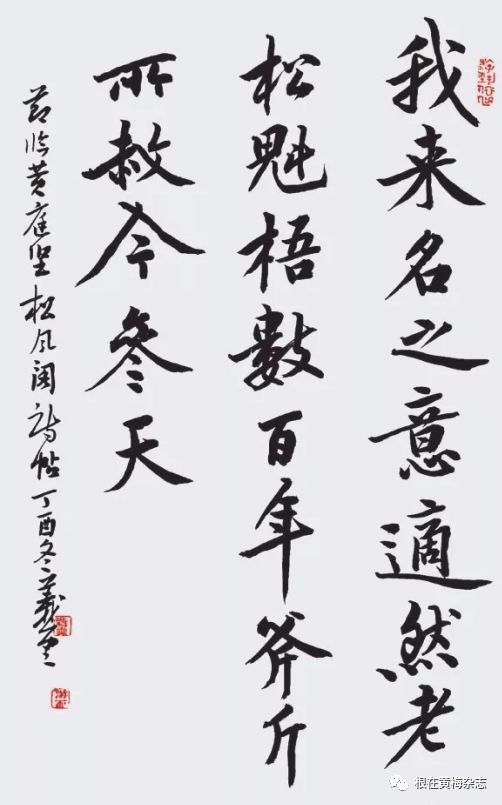 我来名之意適然老
松魁梧數百年斧斤
所赦今参天
节临黄庭坚松风阁诗帖丁酉冬
根在黄梅杂志